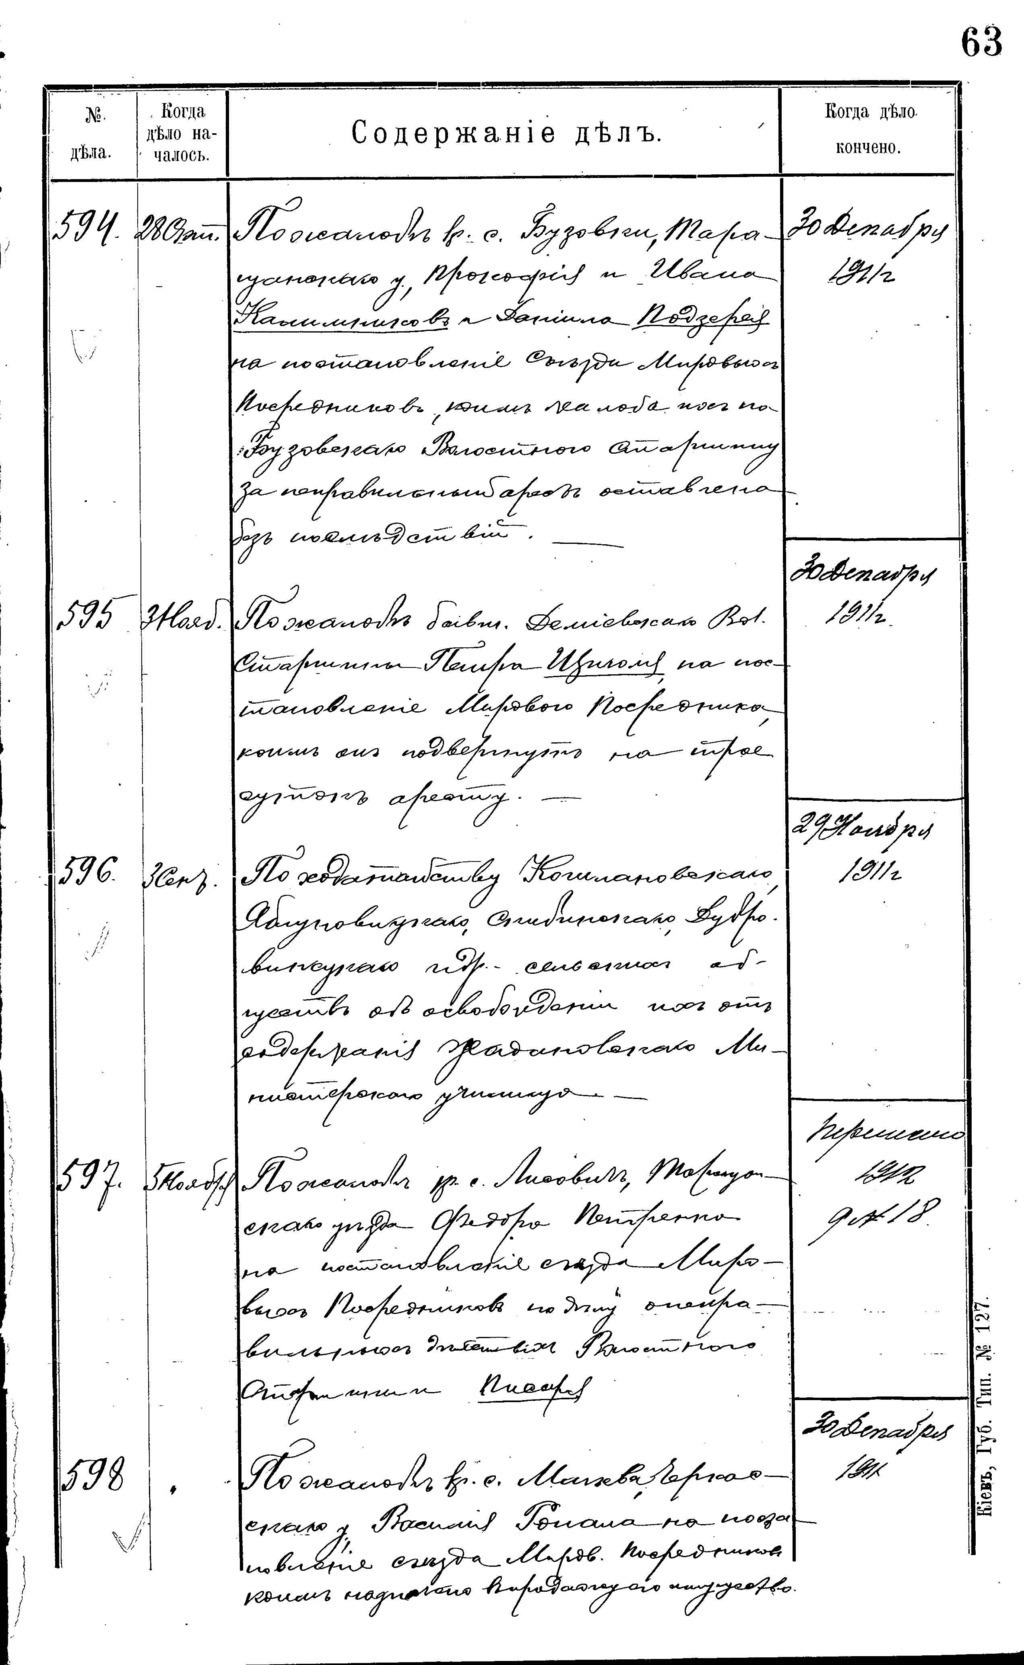 63
№ дѣла.
Когда дѣло началось.
Содержаніе дѣлъ.
Когда дѣло кончено.
594. 28 Окт.
По жалобѣ кр. с. Бузовки, Тара-
щанскаго у., Прокофія и Ивана
Калимниковъ и Даніила Подзерея
на постановленіе Съѣзда Мировыхъ
Посредниковъ, коимъ жалоба ихъ на
Бузовскаго Волостного Старшину
за неправильный арестъ оставлена
безъ послѣдствій.
30 Декабря
1911 г
595 3 Нояб.
По жалобѣ бывш. Деміевскаго Вол.
Старшины Петра Щиголя на пос-
тановленіе Мирового Посредника,
коимъ онъ подвергнутъ на трое
сутокъ аресту.
30 Декабря
1911 г.
596. 3 Сент.
По ходатайству Кошмановскаго,
Яблуновицкаго,
винецкаго и др. сельскихъ об-
ществъ объ освобожденіи ихъ отъ
содержанія Жадановскаго Ми-
нистерскаго училища.
29 Ноября
1911 г
597. 5 Ноября
По жалобѣ кр. с. Лисовичъ, Таращан-
скаго уѣзда Федора Петренко
на постановленіе съѣзда Миро-
выхъ Посредниковъ по дѣлу о непра-
вильныхъ дѣйствіяхъ Волостного
Старшины и Писаря
Перешло
1912
д № 18.
598
По жалобѣ кр. с. Черкас-
скаго у. Василія на поста
новленіе съѣзда Миров. Посредниковъ
коимъ назначено имущество.
30 Декабря
1911
Кіевъ, Губ. Тип. № 127.